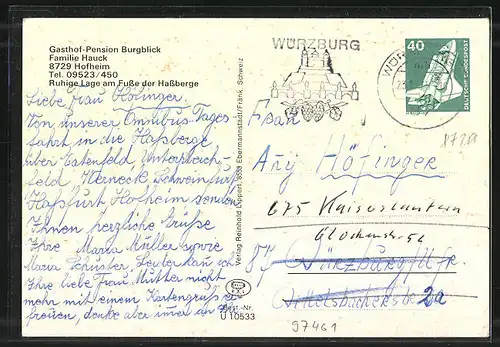 Gasthof-Pension Burgblick
Familie Hauck
8729 Hofheim
Tel. 09523/450
Ruhige Lage am Fuße der Haßberge
Liebe Frau Höfinger
Von unserer Omnibus-Tages-
fahrt in die Haßberge
über
feld, Werneck Schweinfurt
Haßfurt Hofheim senden
Ihnen herzliche Grüße
Ihre Maria Müller
Maria Schuster, Leider kann ich
Ihre liebe Frau Mutter nicht
mehr mit einem Kartengruß er-
freuen, denke aber immer an Sie.
Verlag Reinhold Lippert, 8553 Ebermannstadt/Fränk. Schweiz
Best.-Nr.
U 10533
WÜRZBURG
WÜR
40
DEUTSCHE BUNDESPOST
Frau
Any Höfinger
675 Kaiserslautern
Glockenstr. 54
87 Würzburg
Wittelsbacherstr 2a
97461